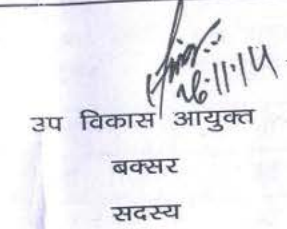 26.11.14
उप विकास आयुक्त
बक्सर
सदस्य